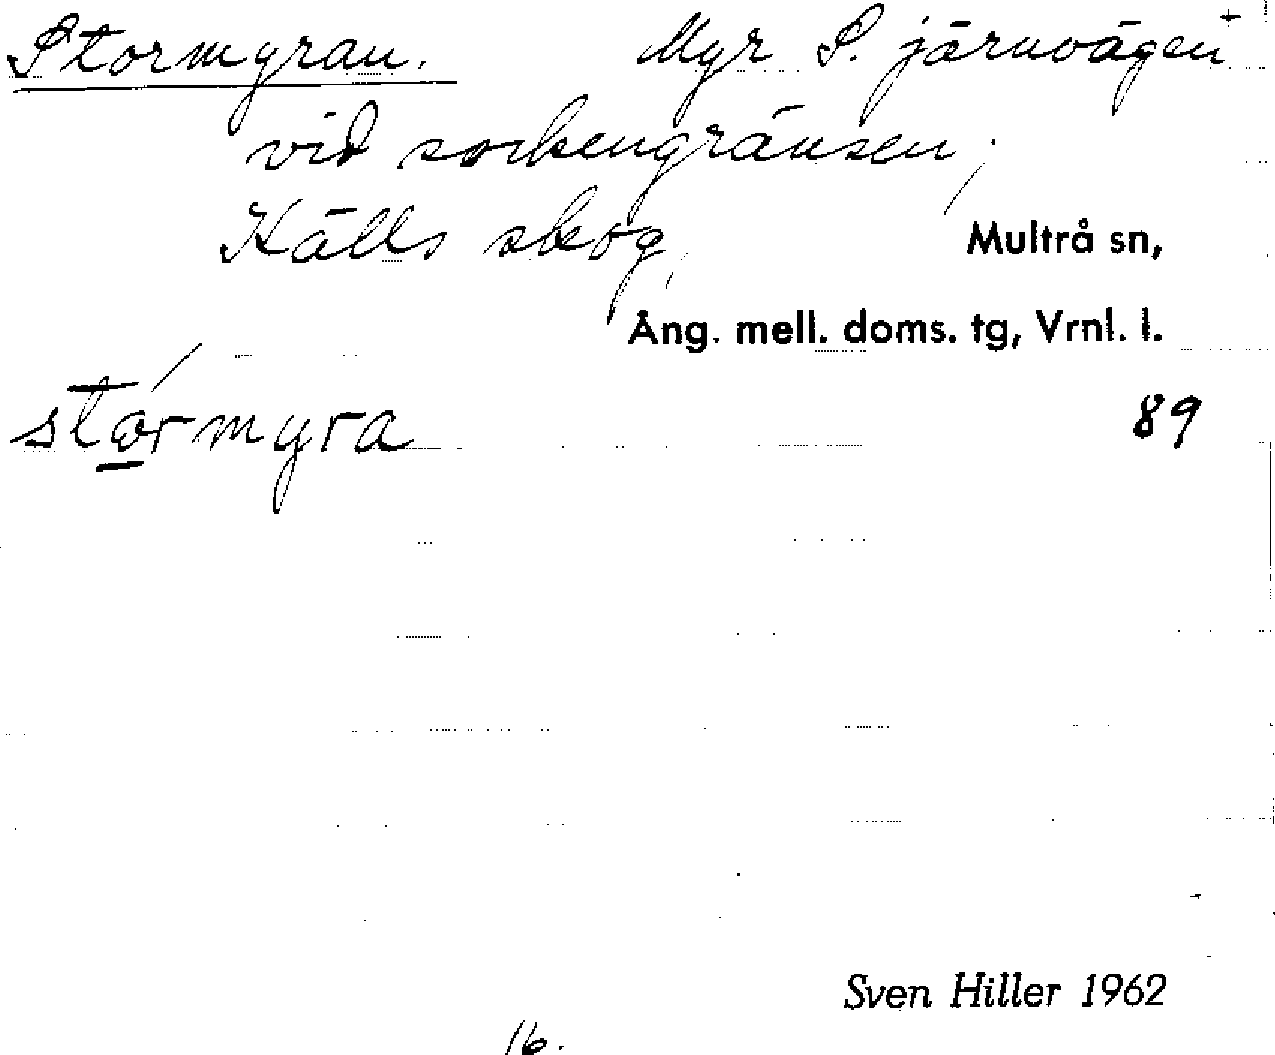 Stormyran. Myr S. järnvägen
vid sockengränsen;
Källs skog, Multrå sn,
Ång. mell. doms. tg, Vrnl. l.
stormyra 89
Sven Hiller 1962
16.